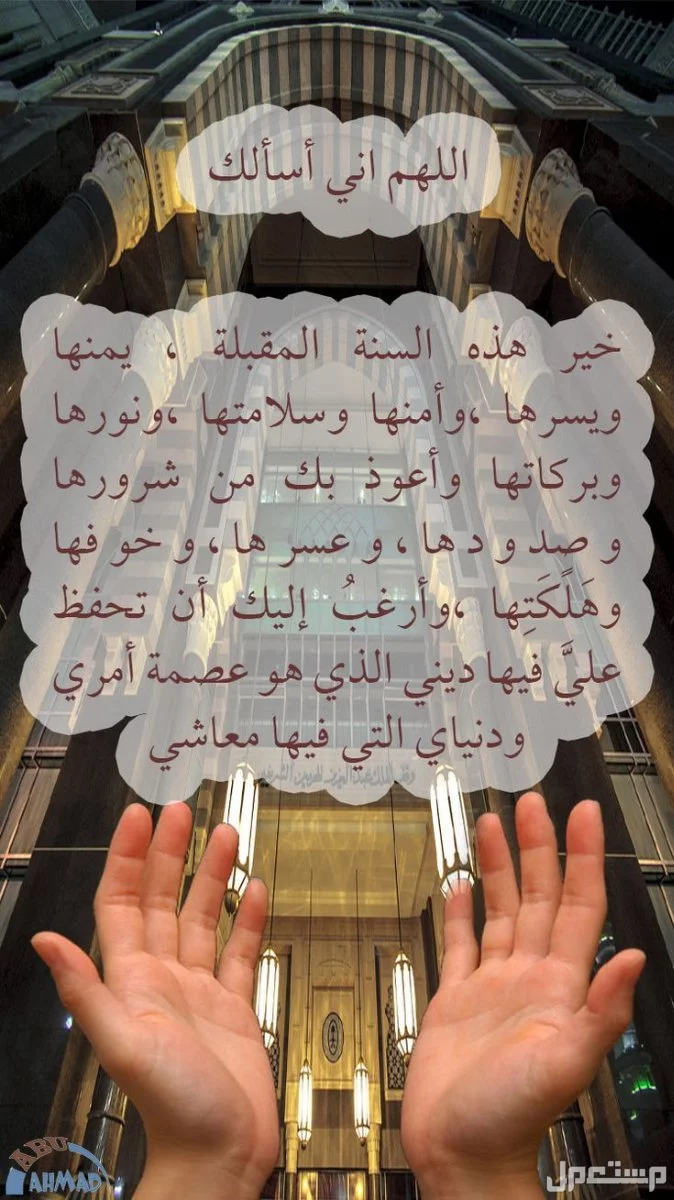 اللهم اني أسألك
خير هذه السنة المقبلة ، يمنها
ويسرها ،وأمنها وسلامتها ،ونورها
وبركاتها وأعوذ بك من شرورها
و صد و د ها ، و عسر ها ، و خو فها
وهَلَكَتِها ،وأرغبُ إليك أن تحفظ
عليَّ فيها ديني الذي هو عصمة أمري
ودنياي التي فيها معاشي
وقف الملك عبد العزيز للحرمين الشريفين
ABU
AHMAD
مستعمل